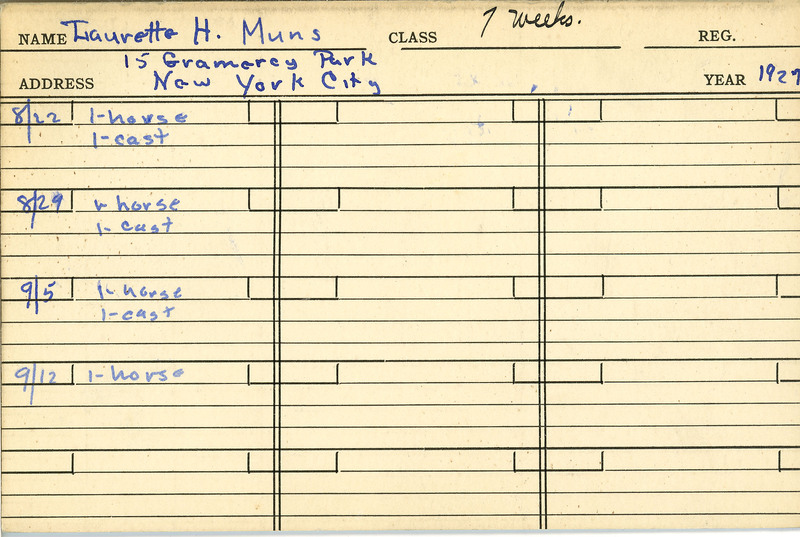 NAME Laurette H. Muns CLASS 7 weeks. REG.
15 Gramercy Park
ADDRESS New York City YEAR 1927
8/22 1-horse
1-cast
8/29 horse
1-cast
9/5 1-horse
1-cast
9/12 1-horse